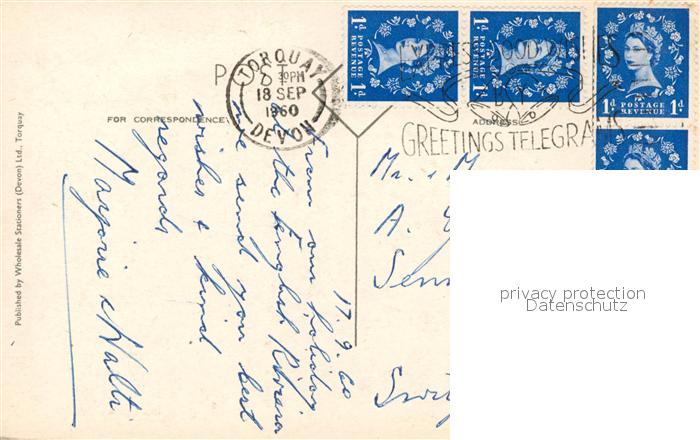 POST
TORQUAY
30PM
18 SEP
1960
DEVON
GREETINGS TELEGRAM
1d POSTAGE REVENUE 1d
1d POSTAGE REVENUE 1d
1d POSTAGE REVENUE 1d
FOR CORRESPONDENCE
ADDRESS
17.9.60
From our holiday
at the English Riviera
we send you best
wishes & kind
regards
Marjorie & Walti
Mr. & M
A.
Senn
Published by Wholesale Stationers (Devon) Ltd., Torquay
privacy protection
Datenschutz